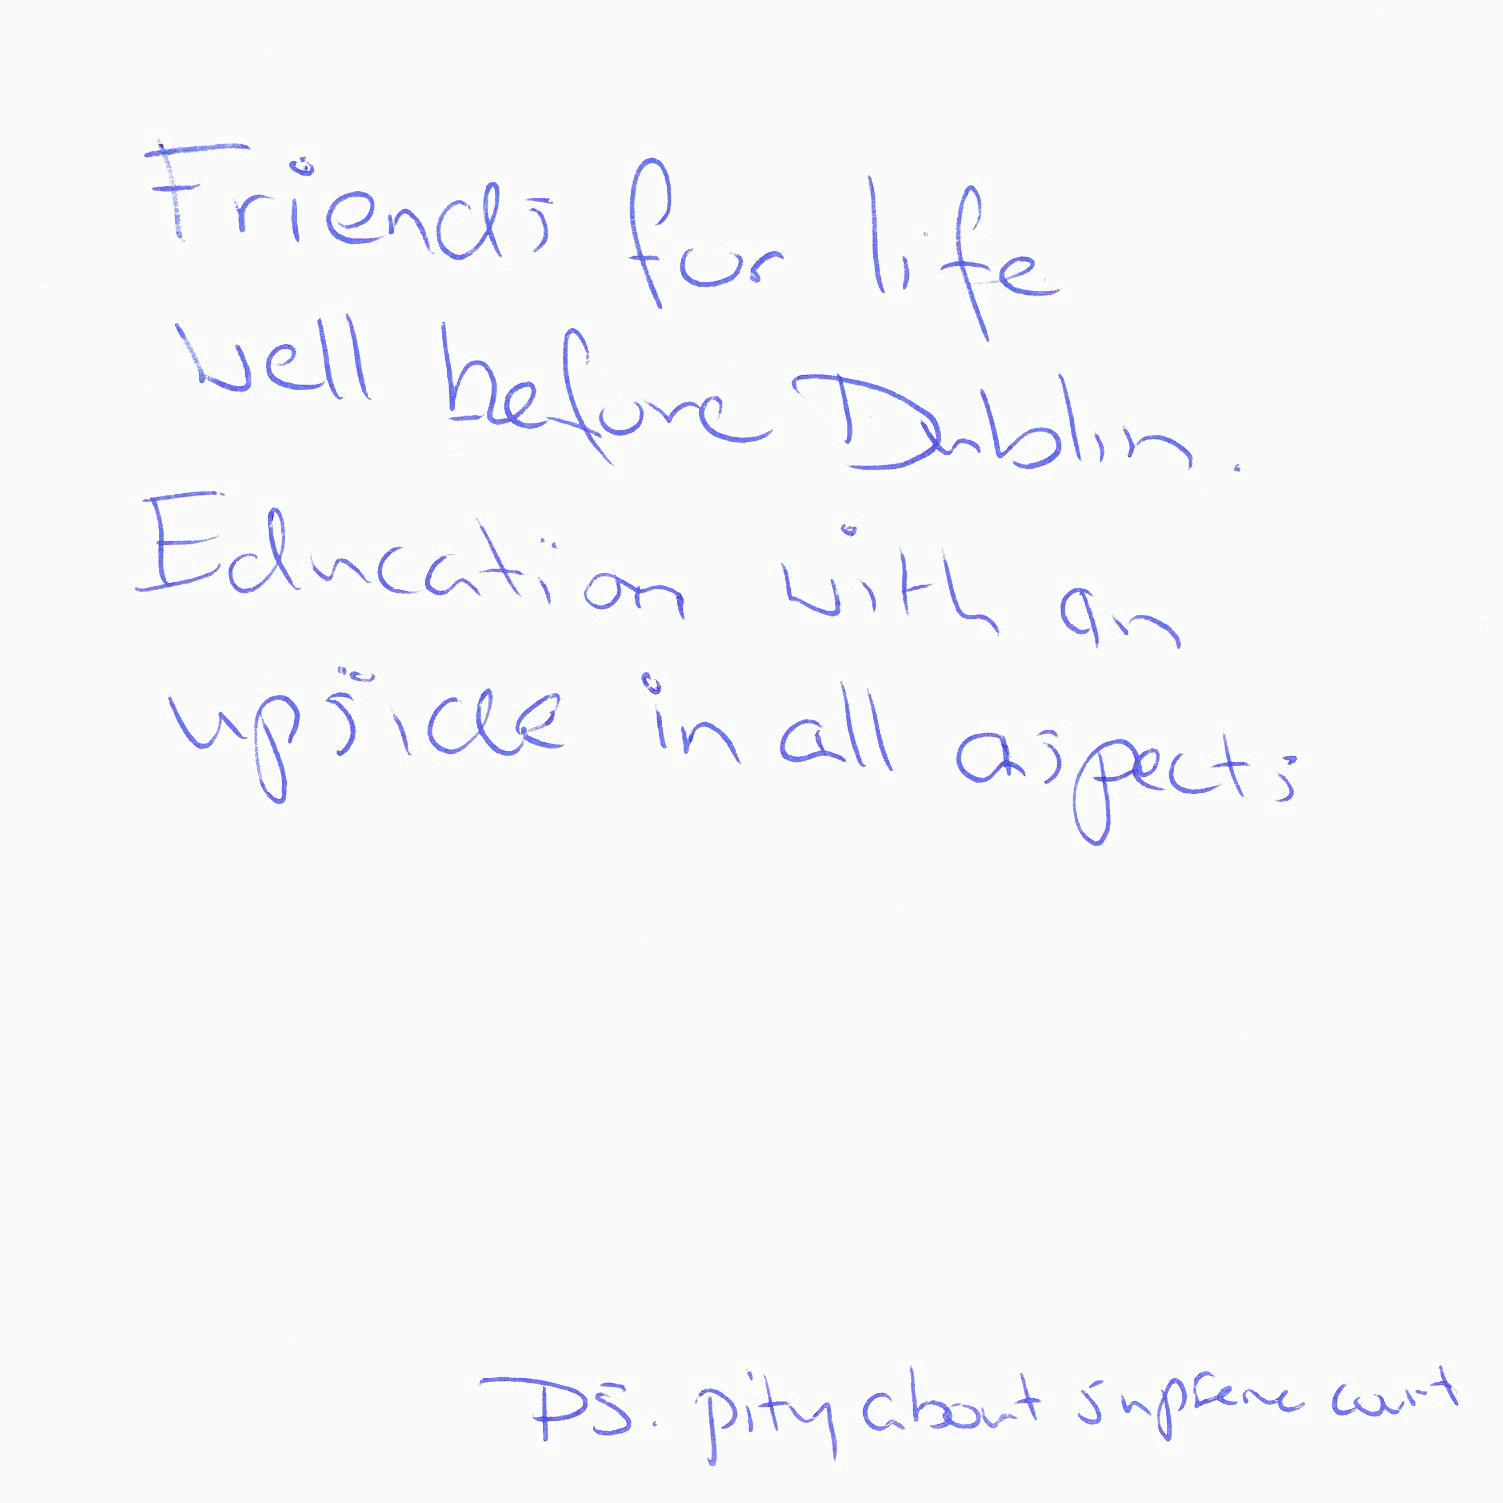 Friends for life
well before Dublin.
Education with an
upside in all aspects
PS. pity about supreme court